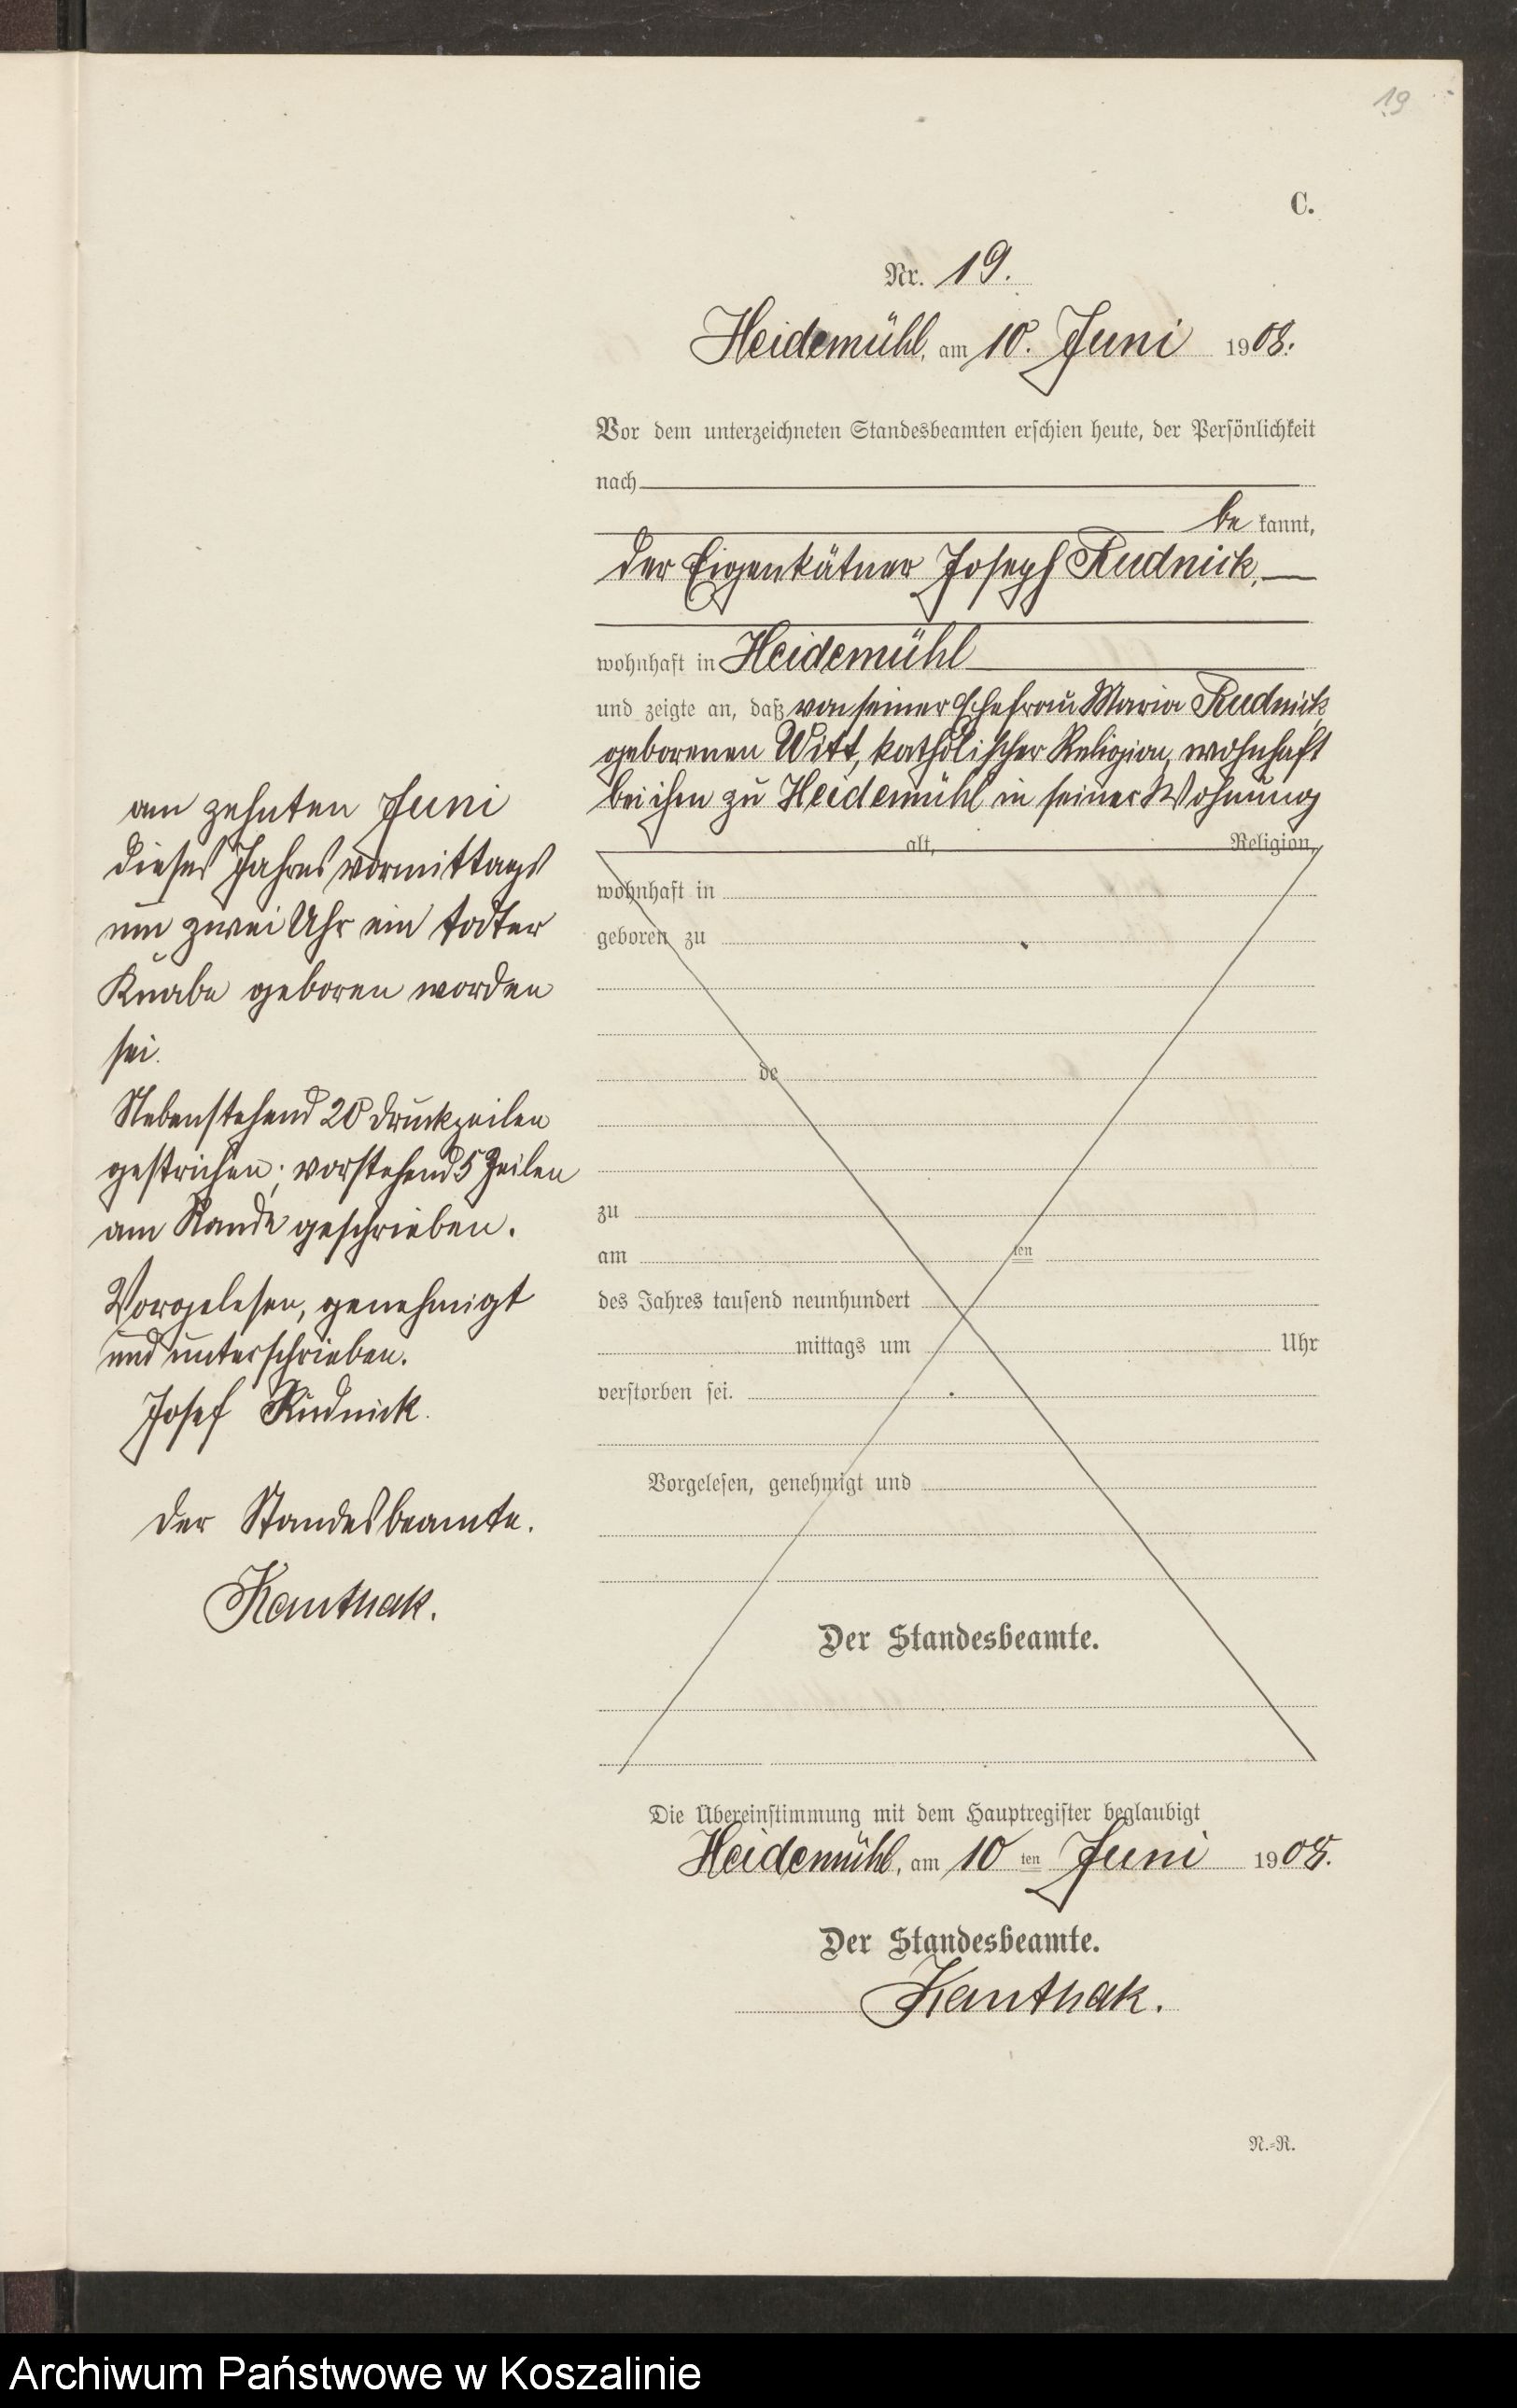 19
C.
Nr. 19.
Heidemühl, am 10. Juni 1908.
Vor dem unterzeichneten Standesbeamten erschien heute, der Persönlichkeit
nach
be kannt,
der Eigenkätner Joseph Rudnick,
wohnhaft in Heidemühl
und zeigte an, daß von seiner Ehefrau Maria Rudnick
geborenen Witt, katholischer Religion, wohnhaft
bei ihm zu Heidemühl in seiner Wohnung
alt, Religion,
wohnhaft in
geboren zu
de
zu
am ten
des Jahres tausend neunhundert
mittags um Uhr
verstorben sei.
Vorgelesen, genehmigt und
Der Standesbeamte.
am zehnten Juni
dieses Jahres vormittags
um zwei Uhr ein todter
Knabe geboren worden
sei.
Nebenstehend 20 Druckzeilen
gestrichen; vorstehend 5 Zeilen
am Rande geschrieben.
Vorgelesen, genehmigt
und unterschrieben.
Josef Rudnick.
Der Standesbeamte.
Kanthak.
Die Übereinstimmung mit dem Hauptregister beglaubigt
Heidemühl, am 10 ten Juni 1908.
Der Standesbeamte.
Kanthak.
N.=R.
Archiwum Państwowe w Koszalinie